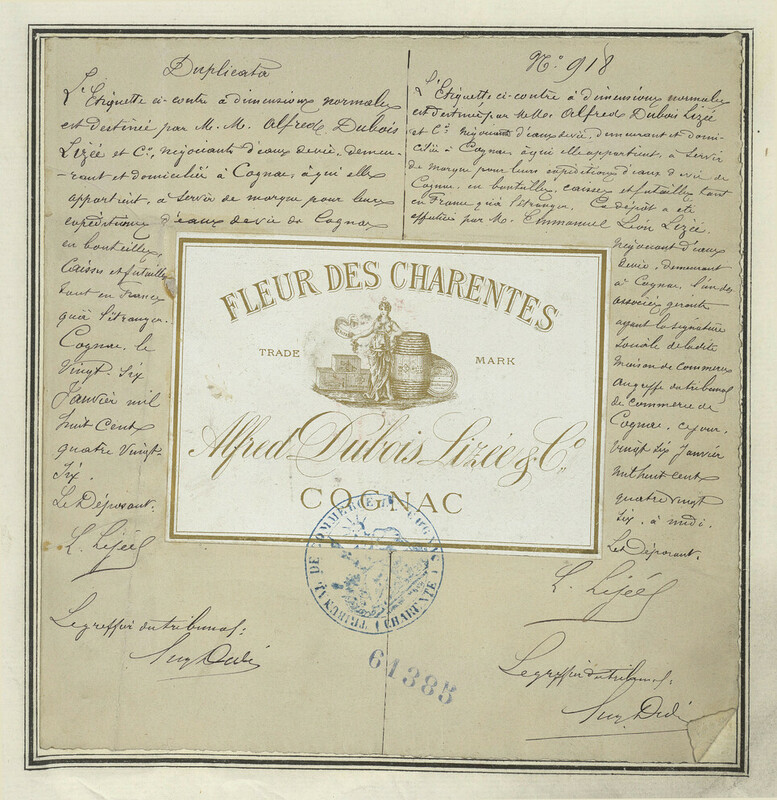 Duplicata
L'Etiquette ci-contre à dimensions normales
est destinée par M.M. Alfred Dubois
Lizée et Cie, négociants d'eaux de vie, demeu-
-rant et domiciliés à Cognac, à qui elle
appartient, à servir de marque pour leurs
expéditions d'eaux de vie de Cognac
en bouteilles,
Caisses et futailles
tant en France
qu'à l'étranger.
Cognac, le
Vingt-Six
Janvier mil
huit cent
quatre Vingt-
Six.
Le Déposant.
L. Lizée
Le greffier du tribunal:
No: 918
L'Etiquette ci-contre à dimensions normales
est destinée par MM. Alfred Dubois Lizée
et Cie négociants d'eaux de vie, demeurant et domi-
ciliés à Cognac, à qui elle appartient, à servir
de marque pour leurs expéditions d'eaux de vie de
Cognac, en bouteilles, caisses et futailles tant
en France qu'à l'étranger. Ce dépôt a été
effectué par M. Emmanuel Léon Lizée.
négociant d'eaux
de vie, demeurant
à Cognac, l'un des
associés gérants
ayant la signature
sociale de ladite
maison de commerce
au greffe du tribunal
de commerce de
Cognac, ce jour,
vingt six Janvier
mil huit cent
quatre vingt
six, à midi.
Le Déposant.
L. Lizée
Le greffier du tribunal:
FLEUR DES CHARENTES
TRADE MARK
Alfred Dubois Lizée & Co.
COGNAC
TRIBUNAL DE COMMERCE DE COGNAC (CHARENTE)
61385